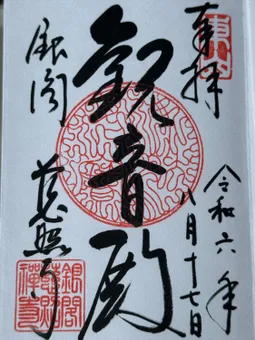 奉拝
令和六年
八月十七日
観音殿
銀閣
慈照寺